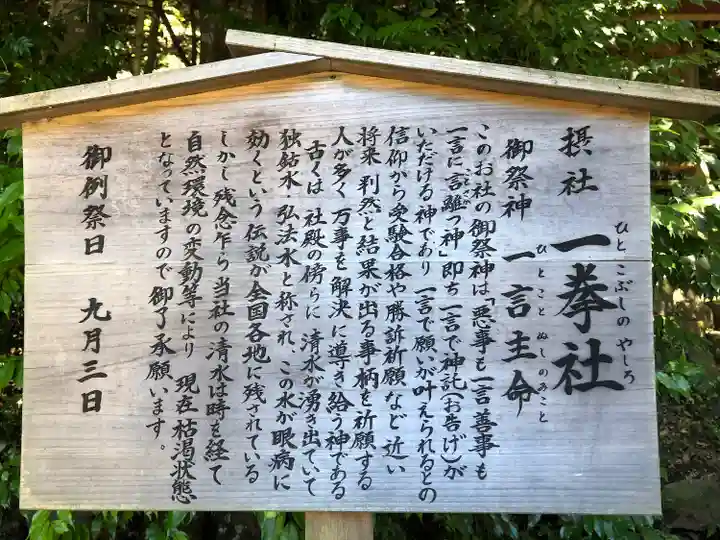 摂社 一拳社
ひと こぶしの やしろ
御祭神 一言主命
ひとこと ぬしのみこと
このお社の御祭神は「悪事も一言 善事も
一言に言離つ神」即ち一言で神託(お告げ)が
いただける神であり 一言で願いが叶えられるとの
信仰から受験合格や勝訴祈願など 近い
将来 判然と結果が出る事柄を祈願する
人が多く 万事を解決に導き給う神である
古くは 社殿の傍らに 清水が湧き出ていて
独鈷水 弘法水と称され、この水が眼病に
効くという 伝説が全国各地に残されている
しかし 残念乍ら 当社の清水は時を経て
自然環境の変動等により 現在 枯渇状態
となっていますので 御了承願います。
御例祭日 九月三日